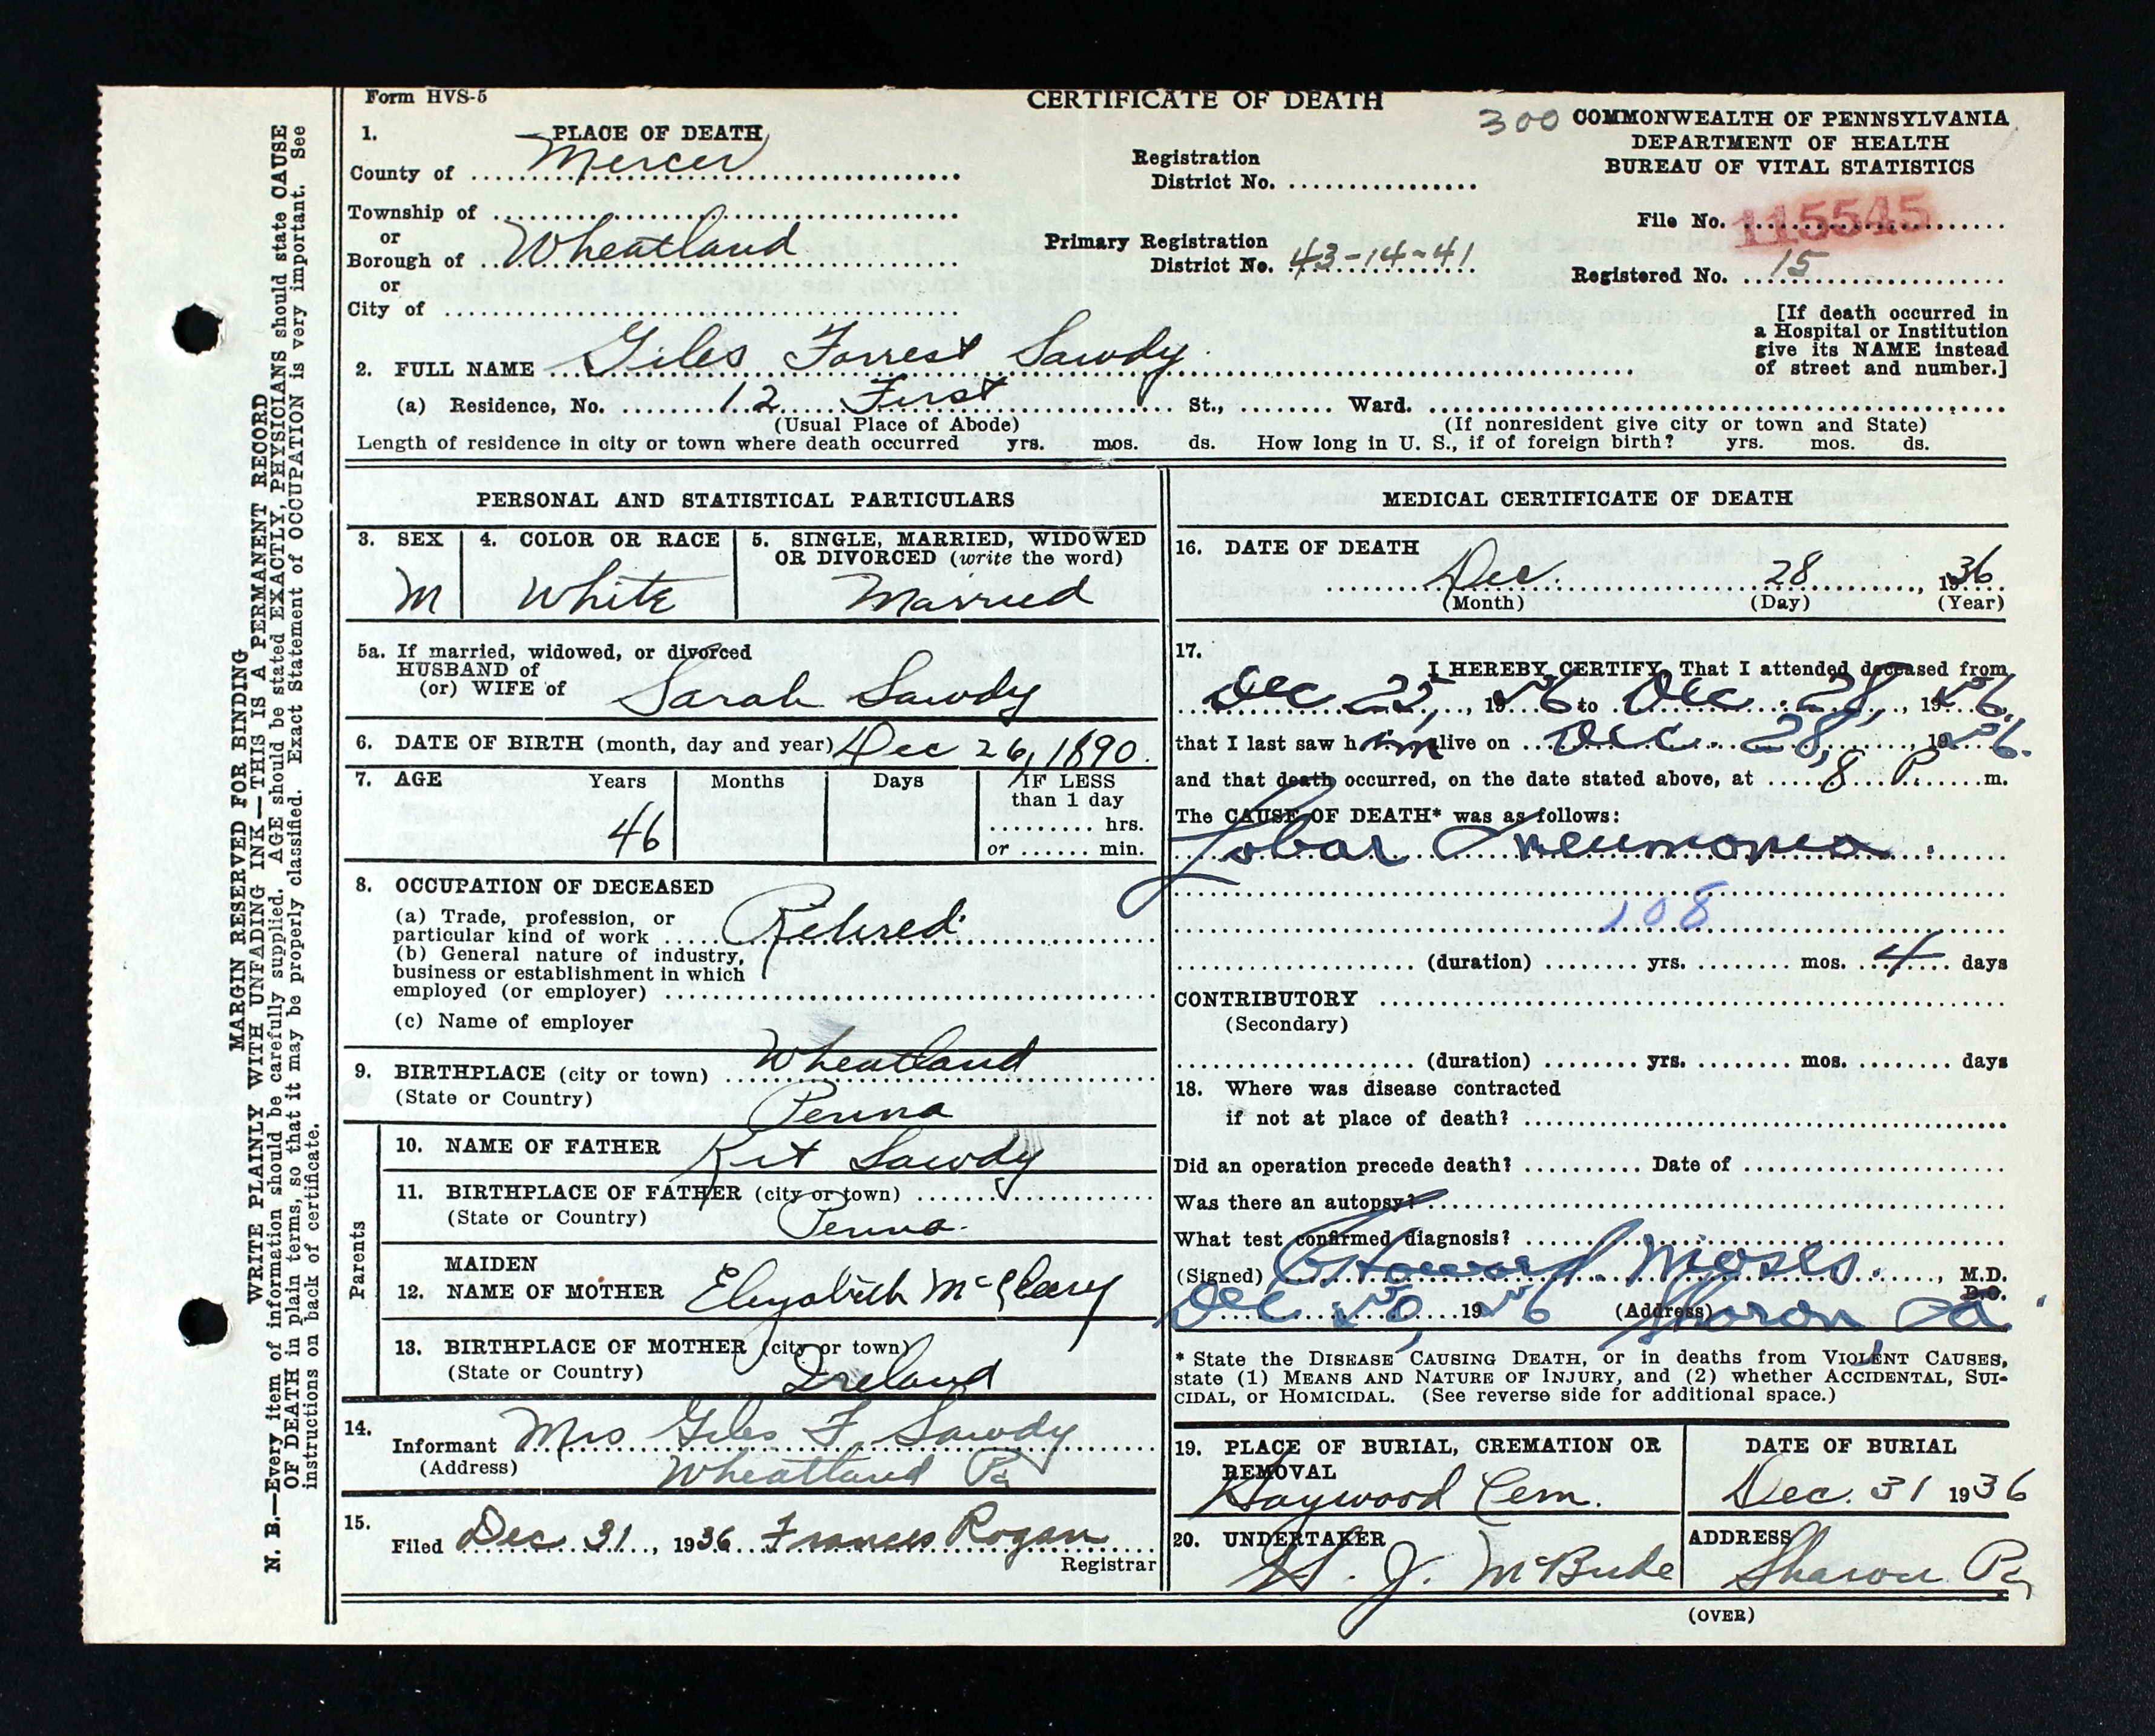 Form HVS-5
CERTIFICATE OF DEATH
300 COMMONWEALTH OF PENNSYLVANIA
DEPARTMENT OF HEALTH
BUREAU OF VITAL STATISTICS
1. PLACE OF DEATH
County of Mercer
Registration
District No.
Township of
or
Borough of Wheatland
or
City of
Primary Registration
District No. 43-14-41
File No. 115545
Registered No. 15
[If death occurred in
a Hospital or Institution
give its NAME instead
of street and number.]
2. FULL NAME Giles Forrest Sawdy
(a) Residence, No. 12 First St., Ward.
(Usual Place of Abode) (If nonresident give city or town and State)
Length of residence in city or town where death occurred yrs. mos. ds. How long in U. S., if of foreign birth? yrs. mos. ds.
PERSONAL AND STATISTICAL PARTICULARS
3. SEX
M
4. COLOR OR RACE
White
5. SINGLE, MARRIED, WIDOWED
OR DIVORCED (write the word)
Married
5a. If married, widowed, or divorced
HUSBAND of
(or) WIFE of Sarah Sawdy
6. DATE OF BIRTH (month, day and year) Dec 26, 1890.
7. AGE Years Months Days IF LESS
than 1 day
hrs.
or min.
46
8. OCCUPATION OF DECEASED
(a) Trade, profession, or
particular kind of work Retired
(b) General nature of industry,
business or establishment in which
employed (or employer)
(c) Name of employer
9. BIRTHPLACE (city or town) Wheatland
(State or Country) Penna
Parents
10. NAME OF FATHER Kit Sawdy
11. BIRTHPLACE OF FATHER (city or town)
(State or Country) Penna.
MAIDEN
12. NAME OF MOTHER Elizabeth McCleary
13. BIRTHPLACE OF MOTHER (city or town)
(State or Country) Ireland
14.
Informant Mrs Giles F. Sawdy
(Address) Wheatland Pa
15.
Filed Dec 31, 1936 Frances Rogan
Registrar
MEDICAL CERTIFICATE OF DEATH
16. DATE OF DEATH
Dec. 28, 1936
(Month) (Day) (Year)
17.
I HEREBY CERTIFY, That I attended deceased from
Dec 25, 1936 to Dec 28, 1936,
that I last saw him alive on Dec. 28, 1936.
and that death occurred, on the date stated above, at 8 P m.
The CAUSE OF DEATH* was as follows:
Lobar Pneumonia.
108
(duration) yrs. mos. 4 days
CONTRIBUTORY
(Secondary)
(duration) yrs. mos. days
18. Where was disease contracted
if not at place of death?
Did an operation precede death? Date of
Was there an autopsy?
What test confirmed diagnosis?
(Signed) Howard Moses, M.D.
D.O.
Dec 30, 1936 (Address) Sharon, Pa.
* State the DISEASE CAUSING DEATH, or in deaths from VIOLENT CAUSES,
state (1) MEANS AND NATURE OF INJURY, and (2) whether ACCIDENTAL, SUI-
CIDAL, or HOMICIDAL. (See reverse side for additional space.)
19. PLACE OF BURIAL, CREMATION OR
REMOVAL
Haywood Cem.
DATE OF BURIAL
Dec. 31 1936
20. UNDERTAKER
J. McBride
ADDRESS
Sharon Pa
(OVER)
MARGIN RESERVED FOR BINDING
WRITE PLAINLY WITH UNFADING INK—THIS IS A PERMANENT RECORD
N. B.—Every item of information should be carefully supplied. AGE should be stated EXACTLY, PHYSICIANS should state CAUSE
OF DEATH in plain terms, so that it may be properly classified. Exact Statement of OCCUPATION is very important. See
instructions on back of certificate.